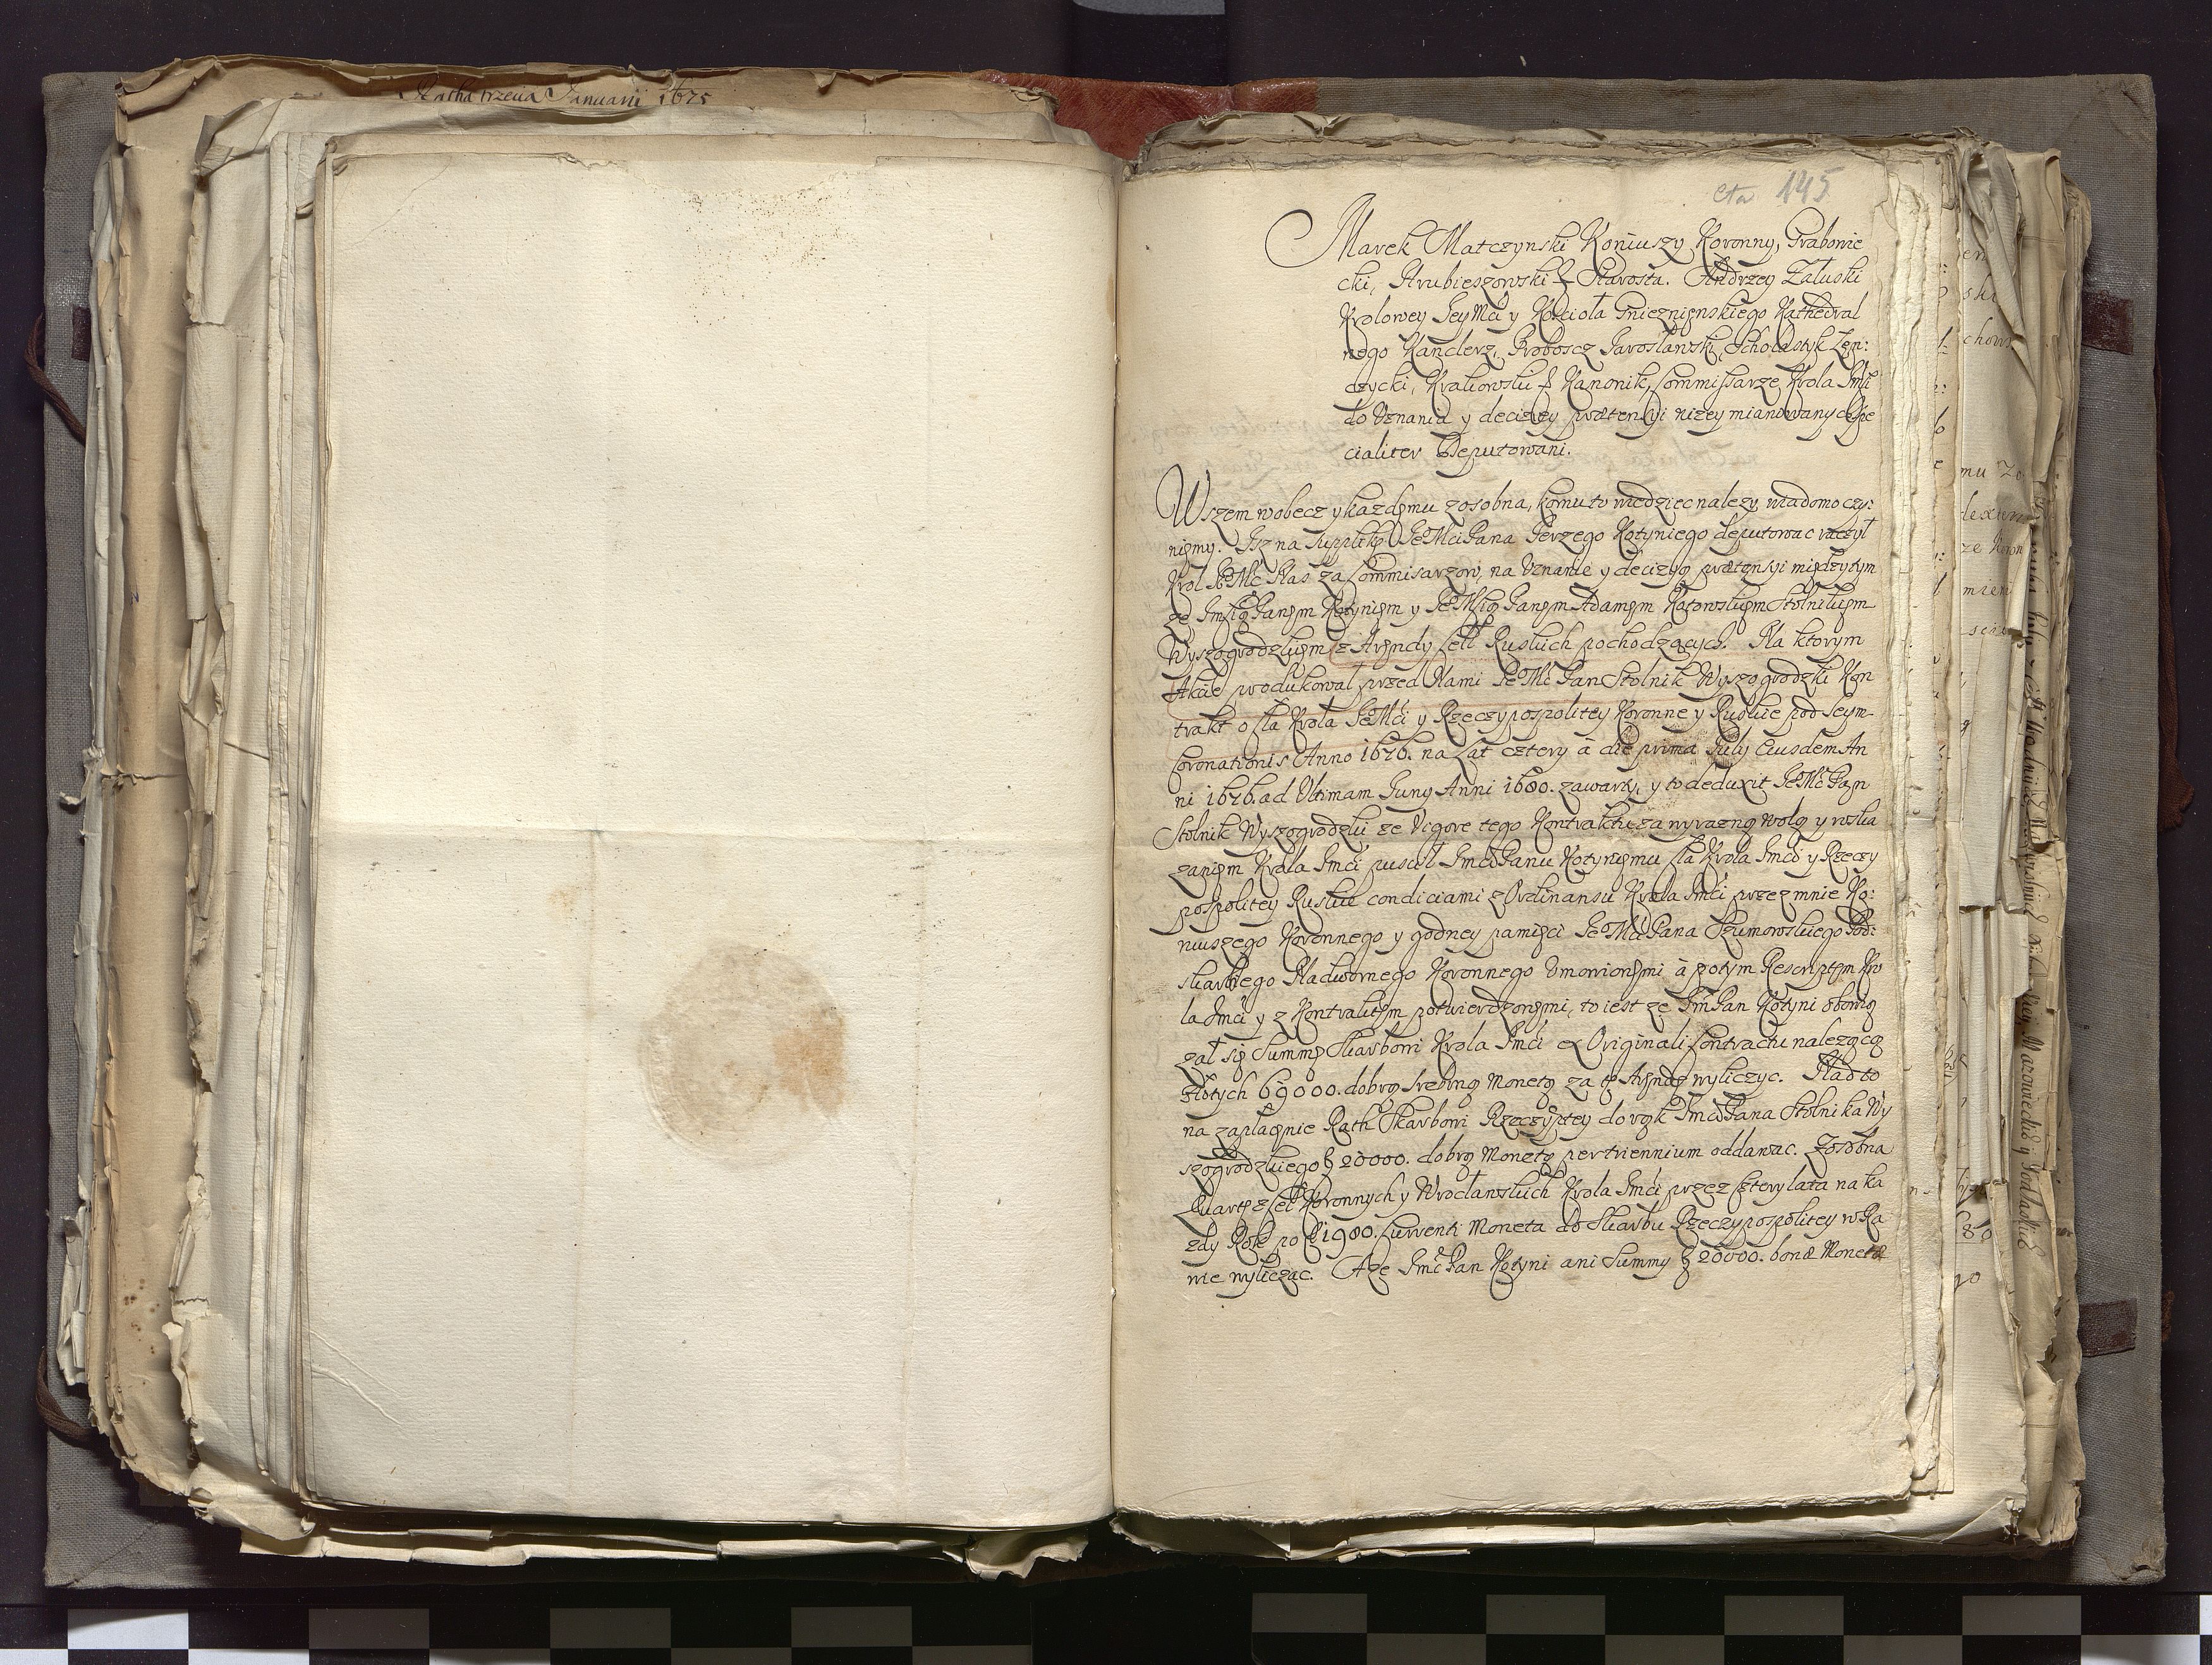 Ratha trzecia Januarii 1675
cta 145
Marek Matczynski Koniuszy Koronny, Grabowie
cki, Hrubieszowski & Starosta. Andrzey Załuski
Krolowey Jey Mći y Kościoła Gnieznięnskiego Kathedral
nego Kanclerz, Proboscz Jarosławski, Scholastyk Łęn:
czycki, Krakowski & Kanonik, Commissarze Krola Jmći
do Uznania y decizyey prætensyi nizey mianowanych spe
cialiter Deputowani.
Wszem wobecz y kazdęmu zosobna, komu to wiedziec nalezy, wiadomo czy:
nięmy. Isz na Supplikę JeMći Pana Jerzego Kotyniego deputowac raczył
Krol JeMć Nas za Commisarzow, na Uznanie y decizyą prætęnsyi międzytym
ze Jmścią Panęm Kotynięm y JeMścią Panęm Adamęm Kotowskięm Stolnikięm
Wyszogrodzkięm z Aręndy Cełł Ruskich pochodzących. Na ktorym
Akcie produkował przed Nami JeMć Pan Stolnik Wyszogrodzki Kon
trakt o Cła Krola JeMći y Rzeczypospolitey Koronne y Ruskie pod Seym
Coronationis Anno 1676. na Lat cztery à die prima July Eiusdem An
ni 1676. ad Ultimam Juny Anni 1680. zawarty, y to deduxit JeMć Pan
Stolnik Wyszogrodzki ze Vigore tego Kontraktu za wyrazną wolą y roska
zanięm Krola Jmći puscił Jmći Panu Kotynięmu Cła Krola Jmći y Rzeczy
pospolitey Ruskie condiciami z Ordinansu Krola Jmći przez mnie Ko:
niuszego Koronnego y godney pamięci JeMći Pana Szumowskiego Pod:
skarbiego Nadwornego Koronnego Umowionęmi à potym Rescriptęm Kro
la Jmći y z Kontraktęm potwierdzonęmi, to iest ze Jmć Pan Kotyni obowią
zał się Summę Skarbowi Krola Jmći ex Originali Contractu nalezącą
Złotych 69000. dobrą srebrną Monetą za tę Aręndę wyliczyc. Nadto
na zapłacęnie Rath Skarbowi Rzeczyptey do rąk Jmći Pana Stolnika Wy
szogrodzkiego f 20000. dobrą Monetą per triennium oddawac. Zosobna
Quartę z Cełł Koronnych y Wrocławskich Krola Jmći przez Cztery lata na ka
zdy Rok po f 1900. Currenti Moneta do Skarbu Rzeczypospolitey w Ra
wie wyliczac. A ze Jmć Pan Kotyni ani Summy f 20000. bonæ Monetæ